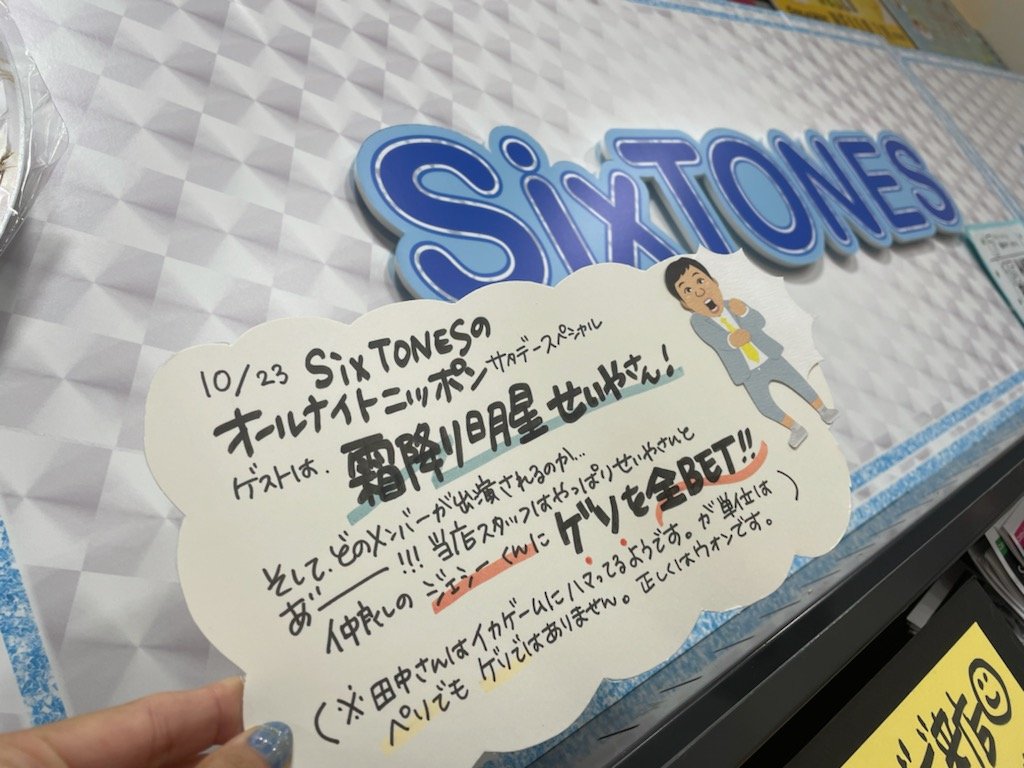 SixTONES
10/23 SixTONESの
オールナイトニッポン サタデースペシャル
ゲストは、霜降り明星 せいやさん!
そして、どのメンバーが出演されるのか…
あ゛――!!! 当店スタッフはやっぱりせいやさんと
仲良しの ジェシーくんに ゲソを全BET!!
(※田中さんはイカゲームにハマってるようです。が単位は
ペソでも ゲソではありません。正しくはウォンです。)